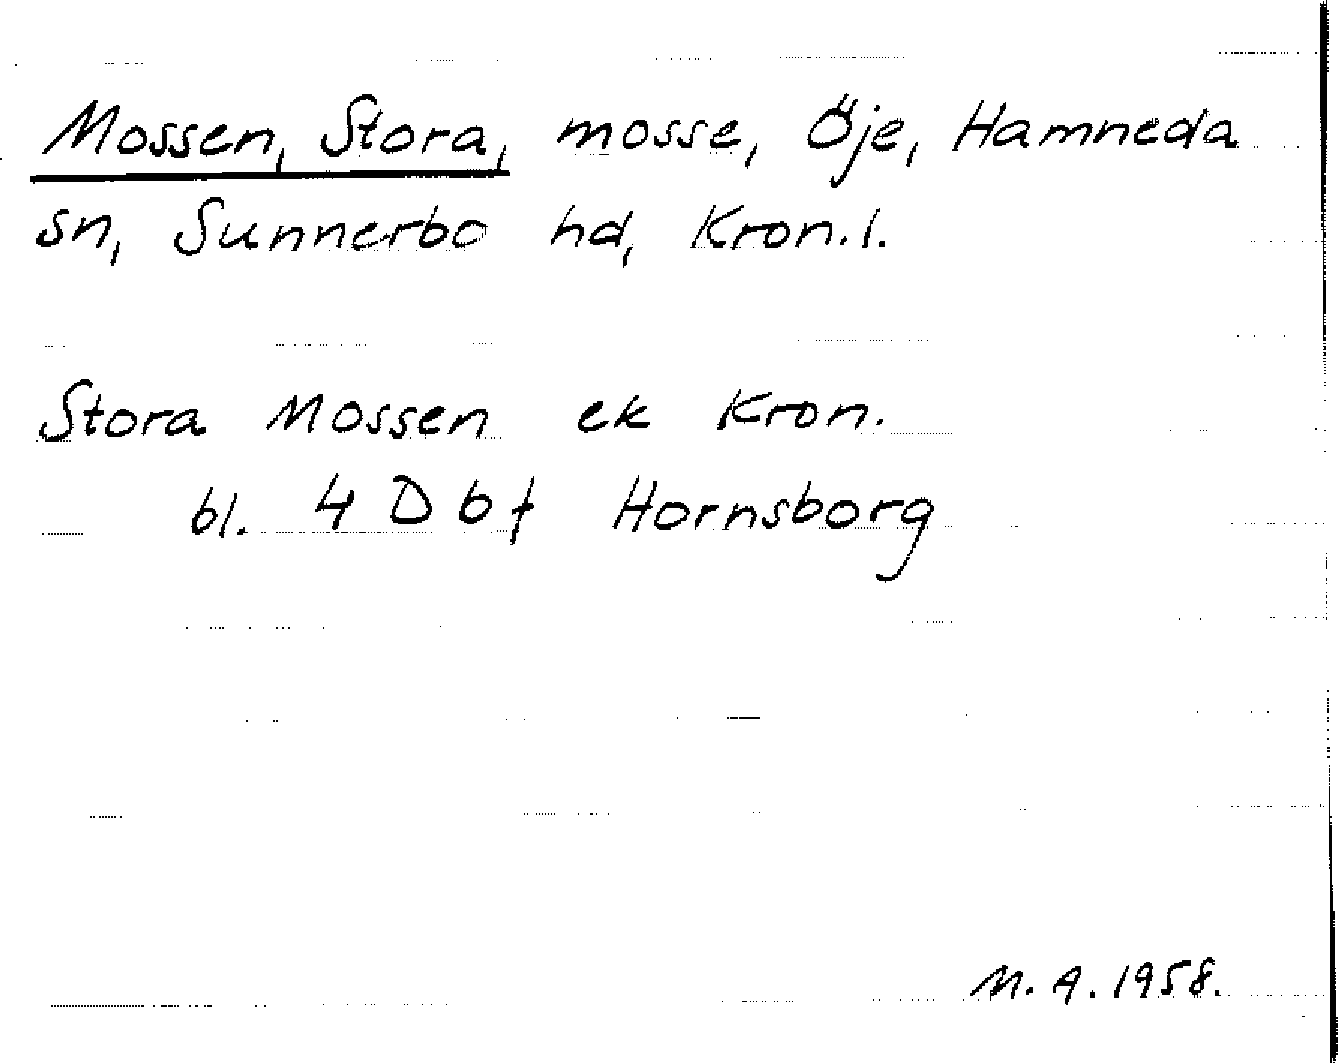 Mossen, Stora, mosse, Öje, Hamneda
sn, Sunnerbo hd, Kron.l.
Stora Mossen ek Kron.
bl. 4 D b f Hornsborg
M.A.1958.